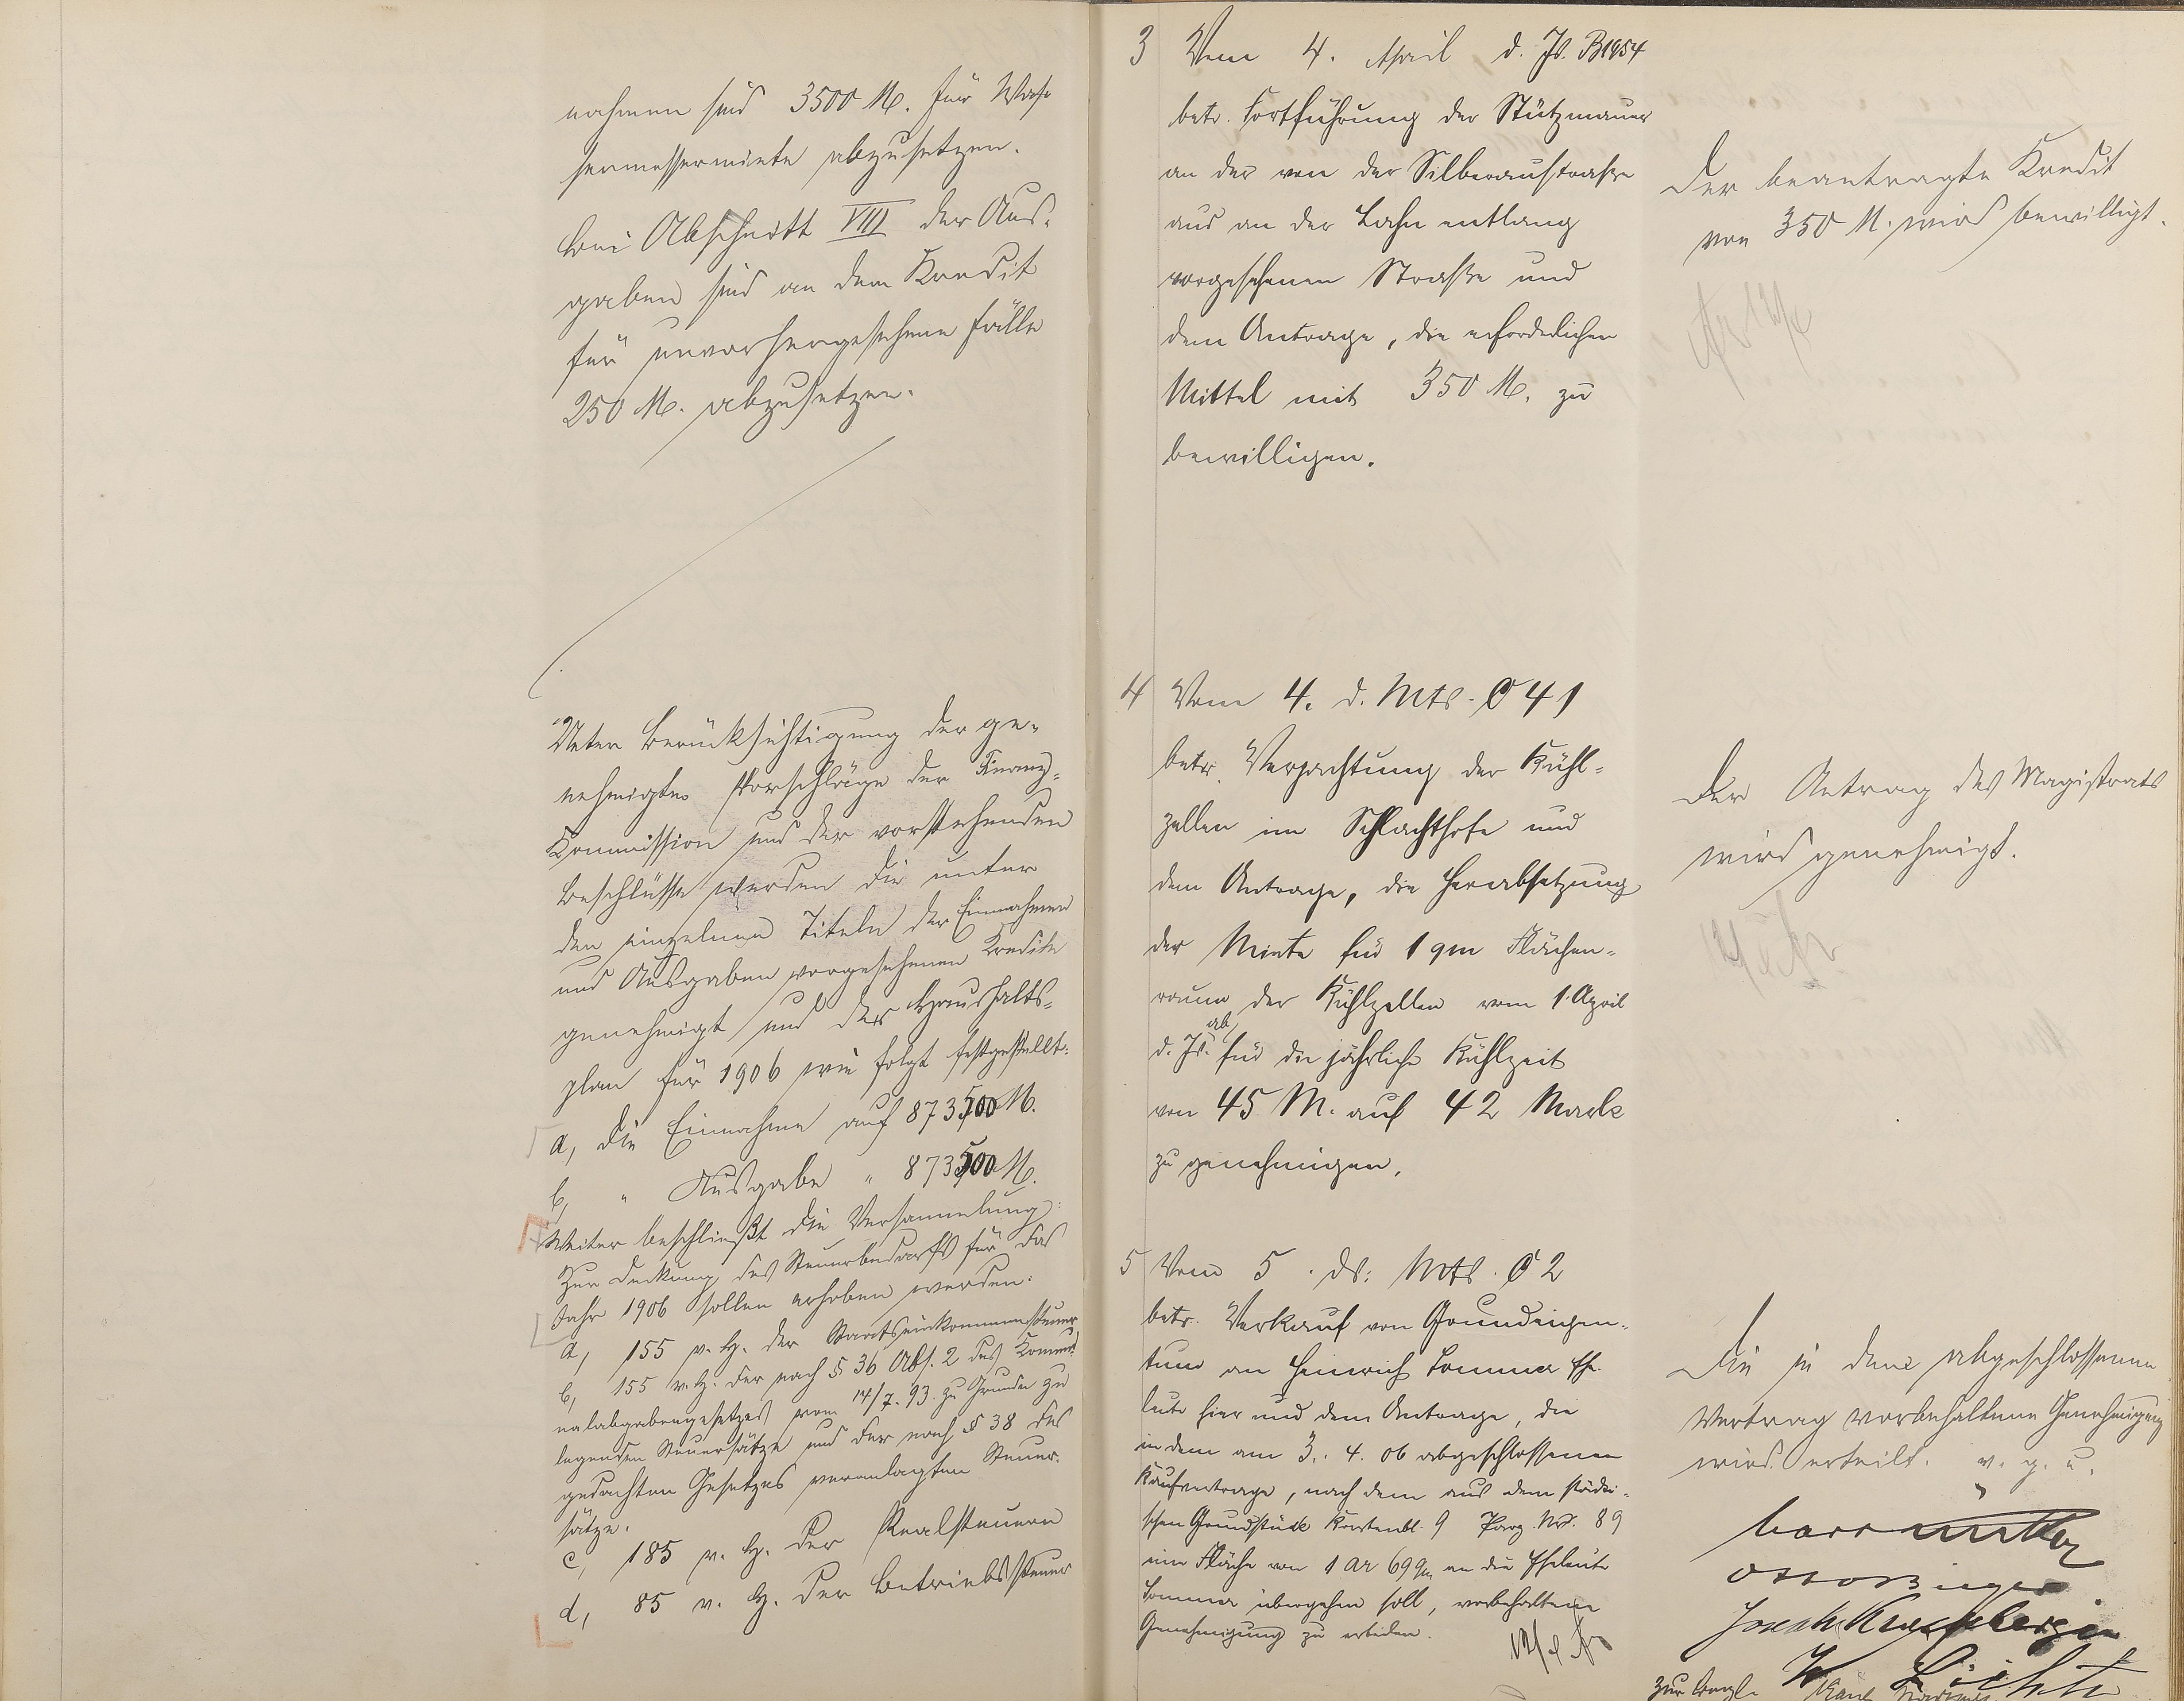 nahmen sind 3500 M. für Was-
sermessermiete abzusetzen.
bei Abschnitt VIII der Aus-
gaben sind an dem Kredit
für unvorhergesehene Fälle
250 M. abzusetzen.
Unter Berücksichtigung der ge-
nehmigten Vorschläge der Finanz-
Kommission und der vorstehenden
Beschlüsse werden die unter
den einzelnen Titeln der Einnahmen
und Ausgaben vorgesehenen Kredite
genehmigt und der Haushalts-
plan für 1906 wie folgt festgestellt:
a, die Einnahme auf 873500 M.
b, " Ausgabe " 873500 M.
Weiter beschließt die Versammlung:
Zur Deckung des Steuerbedarfs für das
Jahr 1906 sollen erhoben werden:
a, 155 v. H. der Staatseinkommensteuer
b, 155 v. H. der nach § 36 Abs. 2 des Kommu-
nalabgabengesetzes vom 14/7. 93. zu Grunde zu
legenden Steuersätze und der nach § 38 des
gedachten Gesetzes veranlagten Steuer-
sätze.
c, 185 v. H. der Realsteuern
d, 85 v. H. der Betriebssteuer
3 Vom 4. April d. Js. B1954
betr. Fortführung der Stützmauer
an der von der Silberaustraße
aus an der Lahn entlang
vorgesehenen Straße und
dem Antrage, die erforderlichen
Mittel mit 350 M. zu
bewilligen.
Der beantragte Kredit
von 350 M. wird bewilligt.
4 Vom 4. d. Mts. C 41
betr. Verpachtung der Kühl-
zellen im Schlachthofe und
dem Antrage, die Herabsetzung
der Miete für 1 qm Flächen-
raum der Kühlzellen vom 1. April
d. Js. ab für die jährliche Kühlzeit
von 45 M. auf 42 Mark
zu genehmigen.
Der Antrag des Magistrats
wird genehmigt.
5 Vom 5. ds. Mts. C 2
betr. Verkauf von Grundeigen-
tum an Heinrich Sommer Ehe-
leute hier und dem Antrage, die
in dem am 3. 4. 06 abgeschlossenen
Kaufvertrage, nach dem aus dem städti-
schen Grundstück Kartenbl. 9 Parz. Nr. 89
eine Fläche von 1 Ar 69 qm an die Eheleute
Sommer übergehen soll, vorbehaltene
Genehmigung zu erteilen.
Die in dem abgeschlossenen
Vertrag vorbehaltene Genehmigung
wird erteilt. v. g. u.